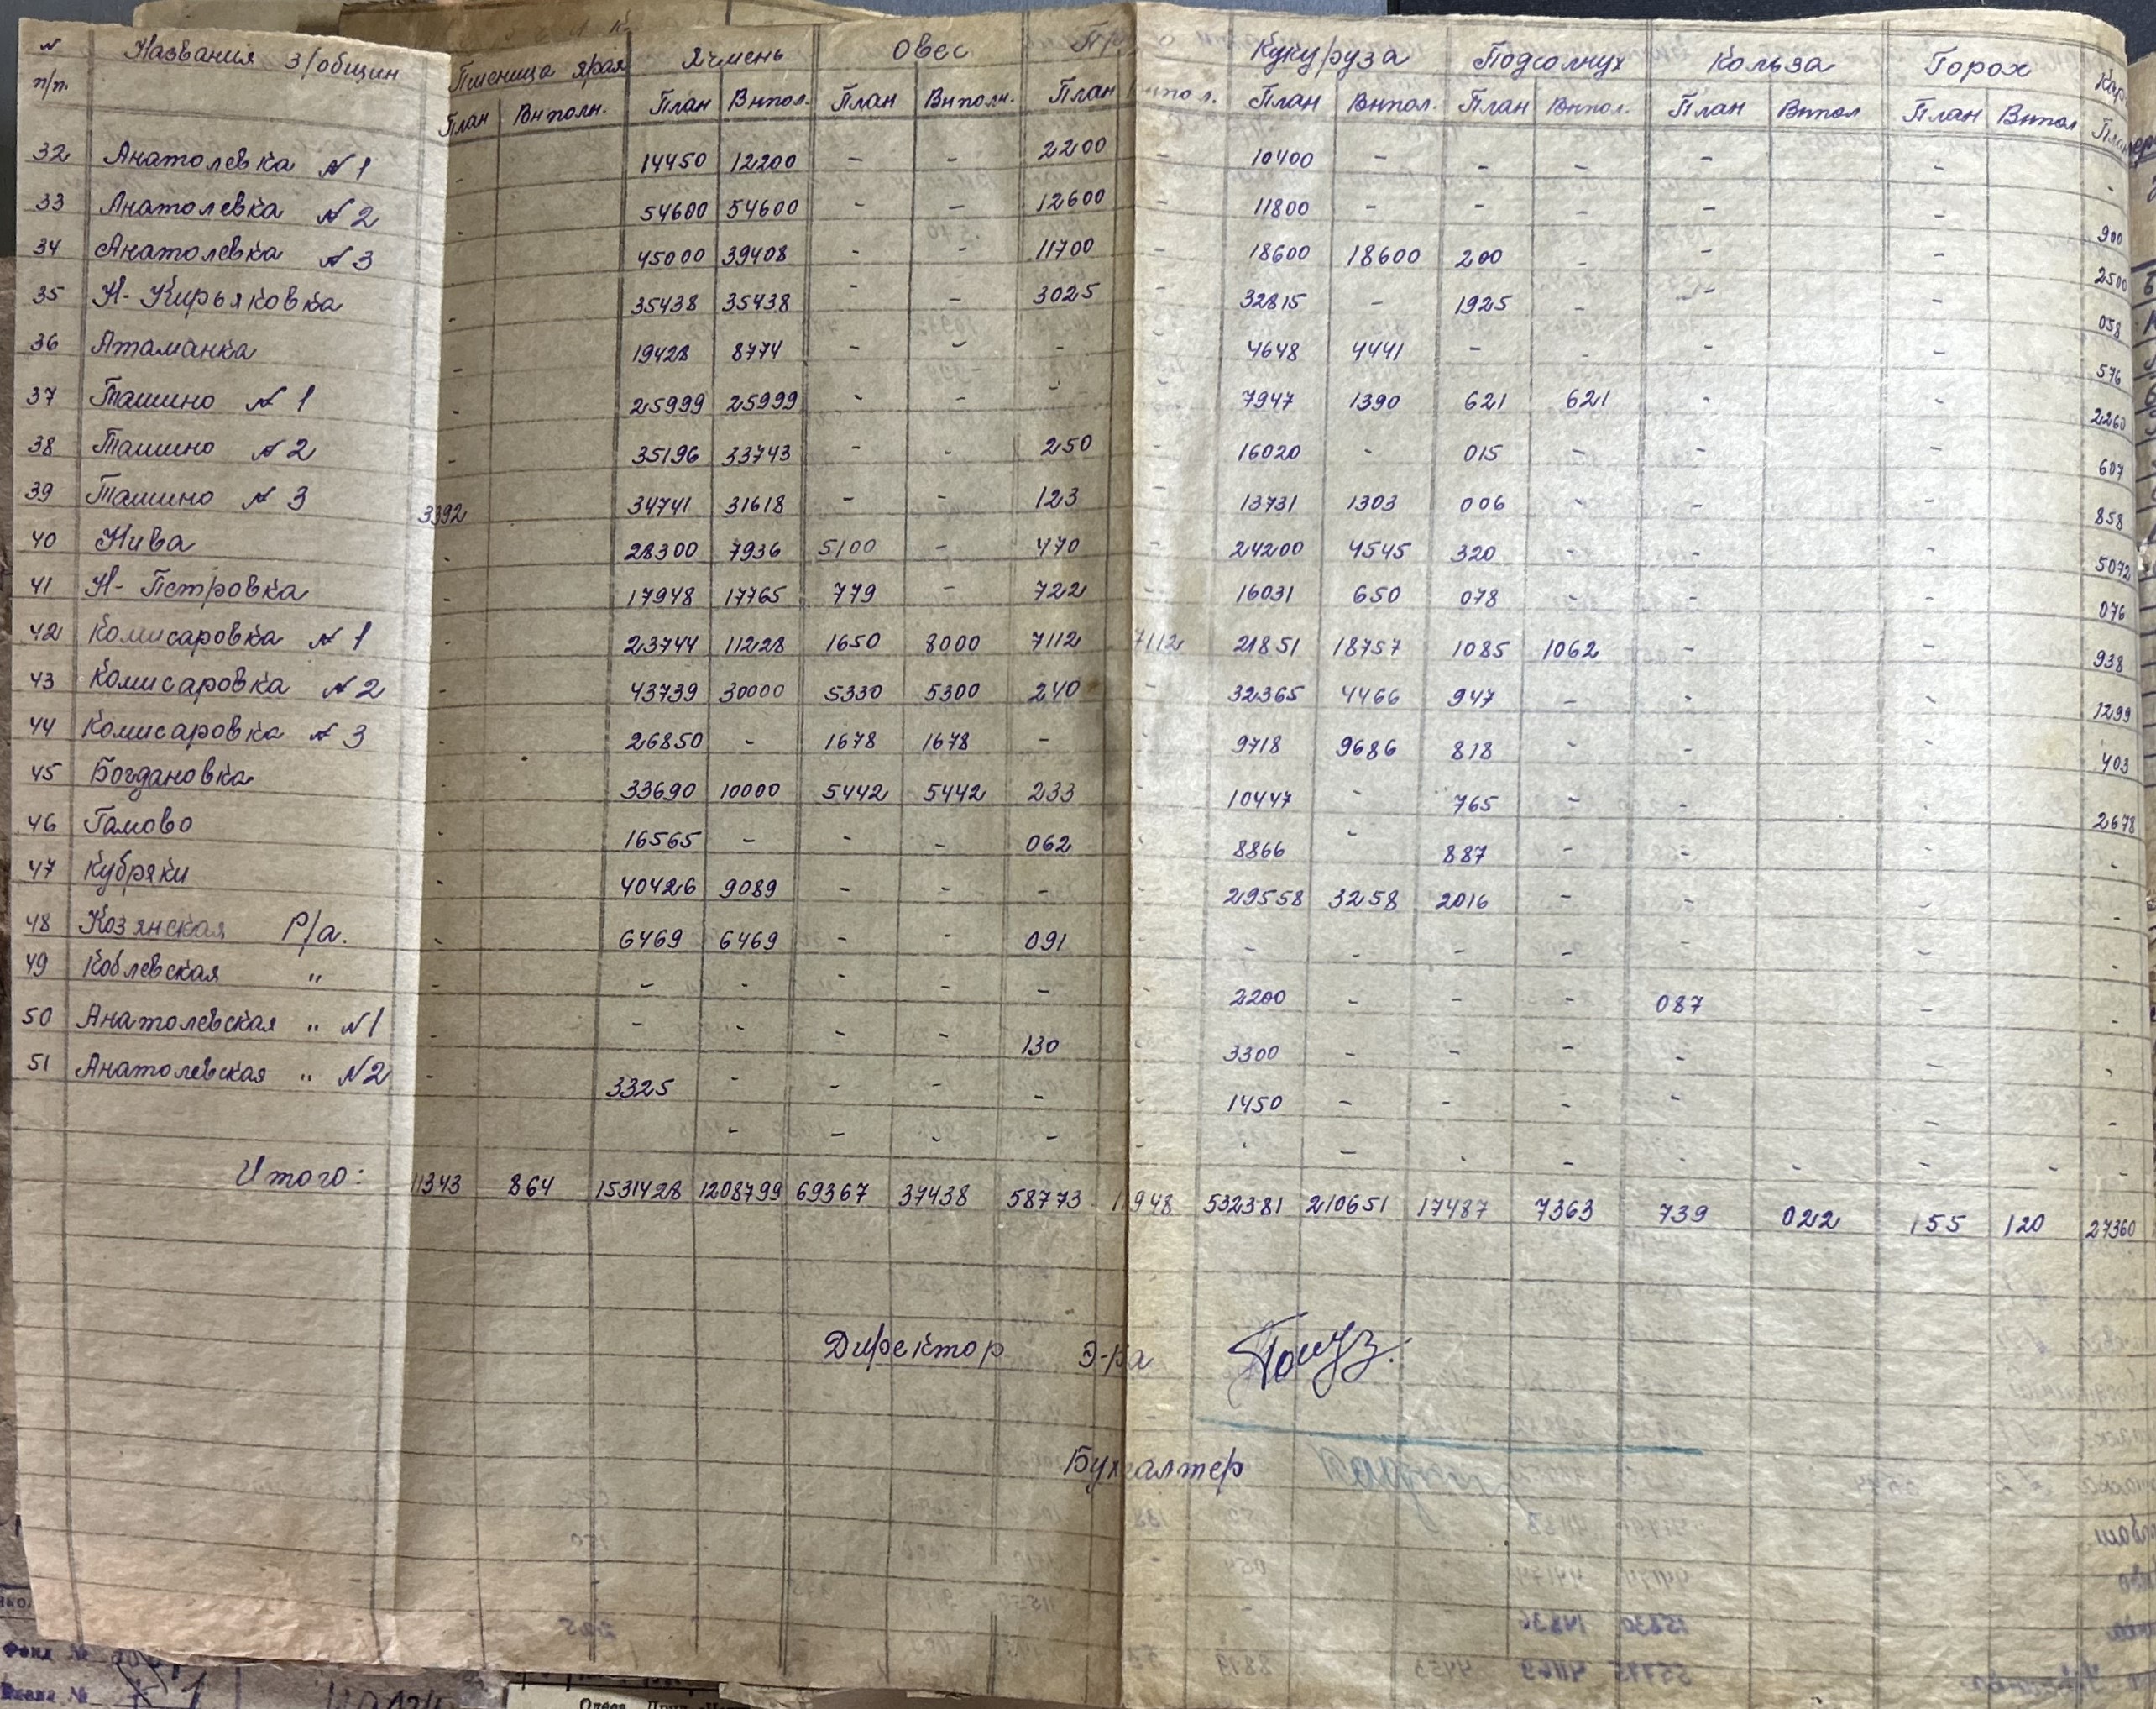 № п/п. Названия з/общин Пшеница ярая Ячмень Овес Кукуруза Подсолнух Кольза Горох
План Выполн. План Выпол. План Выполн. План План Выпол. План Выпол. План Выпол План Выпол План
32 Анатолевка № 1 - 14450 12200 - - 2200 - 10400 - - - - - -
33 Анатолевка № 2 - 54600 54600 - - 12600 - 11800 - - - - - 900
34 Анатолевка № 3 - 45000 39408 - - 11700 - 18600 18600 200 - - - 2500
35 Н-Кирьяковка - 35438 35438 - - 3025 - 32815 - 1925 - - - 058
36 Атаманка - 19428 8774 - - - - 4648 4441 - - - - 576
37 Ташино № 1 - 25999 25999 - - - - 7947 1390 621 621 - - 2260
38 Ташино № 2 - 35196 33743 - - 250 - 16020 - 015 - - - 607
39 Ташино № 3 3392 34741 31618 - - 123 - 13731 1303 006 - - - 858
40 Нива - 28300 7936 5100 - 470 - 24200 4545 320 - - - 5072
41 Н-Петровка - 17948 17765 779 - 722 - 16031 650 078 - - - 076
42 Комисаровка № 1 - 23744 11228 1650 8000 7112 7112 21851 18757 1085 1062 - - 938
43 Комисаровка № 2 - 43739 30000 5330 5300 240 - 32365 4466 947 - - - 1299
44 Комисаровка № 3 - 26850 - 1678 1678 - - 9718 9686 818 - - - 403
45 Богдановка - 33690 10000 5442 5442 233 - 10447 - 765 - - - 2678
46 Гамово - 16565 - - - 062 - 8866 - 887 - - - -
47 Кубряки - 40426 9089 - - - - 29558 3258 2016 - - - -
48 Козянская Р/а. - 6469 6469 - - 091 - - - - - - - -
49 Коблевская " - - - - - - - 2200 - - - 087 - -
50 Анатолевская " №1 - - - - - 130 - 3300 - - - - - -
51 Анатолевская " №2 - 3325 - - - - - 1450 - - - - - -
Итого: 11343 864 1531428 1208799 69367 37438 58773 11948 532381 210651 17487 7363 739 022 155 120 27360
Директор Э-ра
Бухгалтер
Фонд №